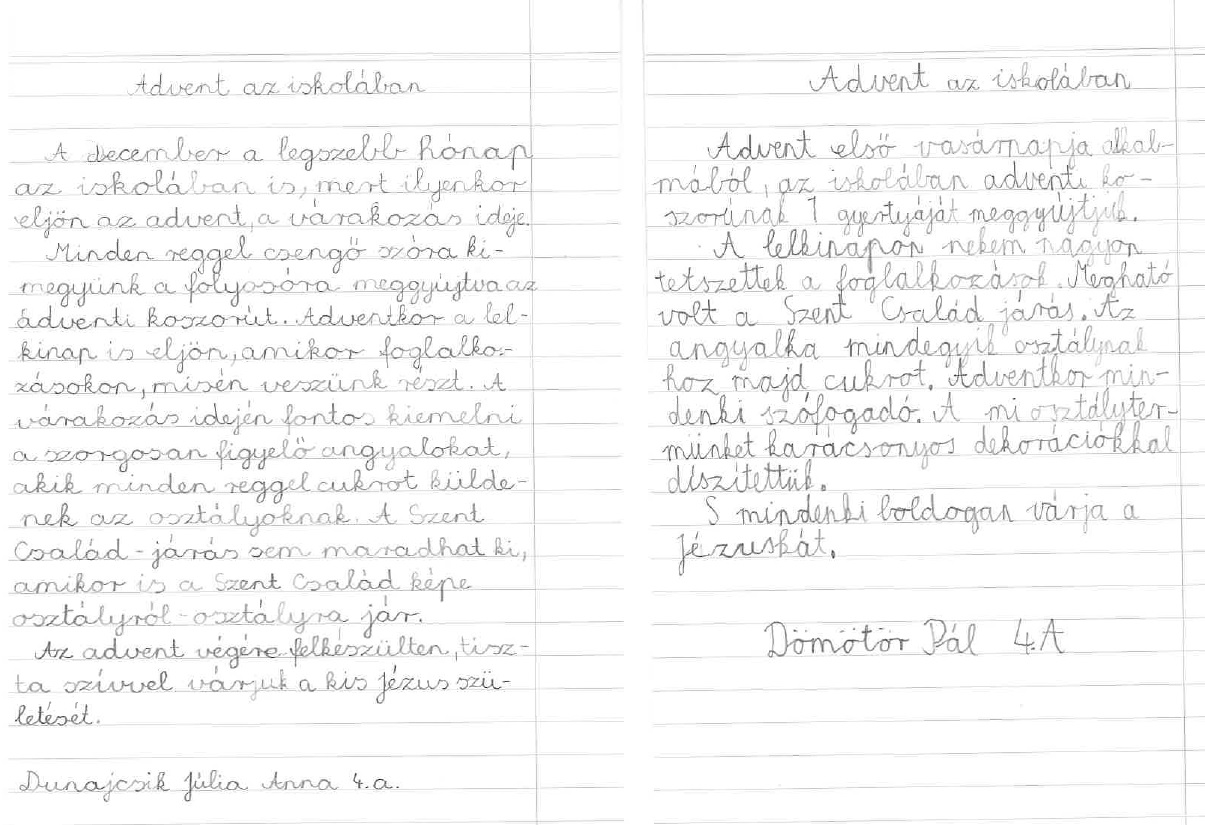 Advent az iskolában
A December a legszebb hónap
az iskolában is, mert ilyenkor
eljön az advent, a várakozás ideje.
Minden reggel csengő szóra ki-
megyünk a folyosóra meggyújtva az
ádventi koszorút. Adventkor a lel-
kinap is eljön, amikor foglalko-
zásokon, misén veszünk részt. A
várakozás idején fontos kiemelni
a szorgosan figyelő angyalokat,
akik minden reggel cukrot külde-
nek az osztályoknak. A Szent
Család-járás sem maradhat ki,
amikor is a Szent Család képe
osztályról-osztályra jár.
Az advent végére felkészülten, tisz-
ta szívvel várjuk a kis Jézus szü-
letését.
Dunajcsik Júlia Anna 4.a.
Advent az iskolában
Advent első vasárnapja alkal-
mából, az iskolában adventi ko-
szorúnak 1 gyertyáját meggyújtjuk.
A lelkinapon nekem nagyon
tetszettek a foglalkozások. Megható
volt a Szent Család járás. Az
angyalka mindegyik osztálynak
hoz majd cukrot. Adventkor min-
denki szófogadó. A mi osztályter-
münket karácsonyos dekorációkkal
díszítettük.
S mindenki boldogan várja a
Jézuskát.
Dömötör Pál 4.A